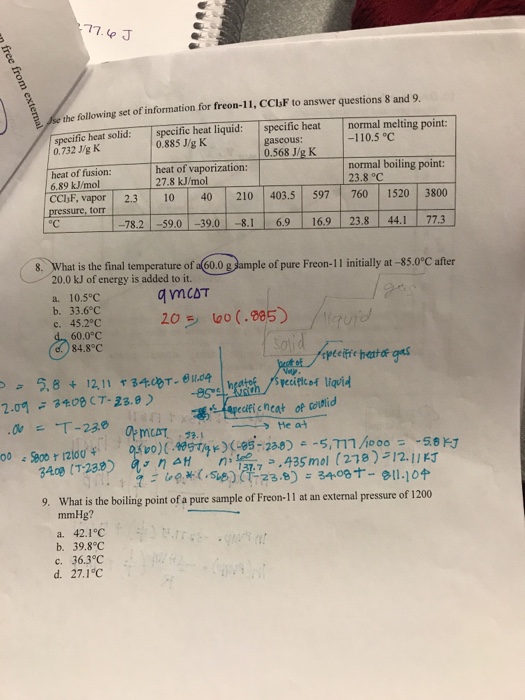 277.6 J
n free from external
Use the following set of information for freon-11, CCl₃F to answer questions 8 and 9.
specific heat solid: 0.732 J/g K | specific heat liquid: 0.885 J/g K | specific heat gaseous: 0.568 J/g K | normal melting point: −110.5 °C
heat of fusion: 6.89 kJ/mol | heat of vaporization: 27.8 kJ/mol | normal boiling point: 23.8 °C
CCl₃F, vapor pressure, torr | 2.3 | 10 | 40 | 210 | 403.5 | 597 | 760 | 1520 | 3800
°C | −78.2 | −59.0 | −39.0 | −8.1 | 6.9 | 16.9 | 23.8 | 44.1 | 77.3
8. What is the final temperature of a 60.0 g sample of pure Freon-11 initially at −85.0°C after
20.0 kJ of energy is added to it.
a. 10.5°C
b. 33.6°C
c. 45.2°C
d. 60.0°C
e. 84.8°C
q mCΔT
20 = 60 (.885)
gas
liquid
solid
specific heat of gas
heat of vap.
heat of fusion
specific of liquid
-85°C
specific heat of solid
→ Heat
= 5.8 + 12.11 + 34.08T - 811.04
2.09 = 3408 (T-23.8)
.06 = T-23.8
00 = 5800 + 12100 +
34.08 (T-23.8)
q=mCΔT
q=(60)(.885J/gK)(-85-23.8) = -5,777/1000 = -5.8 KJ
q = n ΔH n= 60/137.7 = .435 mol (278) = 12.11 KJ
q = 60 * (.568) (T-23.8) = 34.08T - 811.104
9. What is the boiling point of a pure sample of Freon-11 at an external pressure of 1200
mmHg?
a. 42.1°C
b. 39.8°C
c. 36.3°C
d. 27.1°C